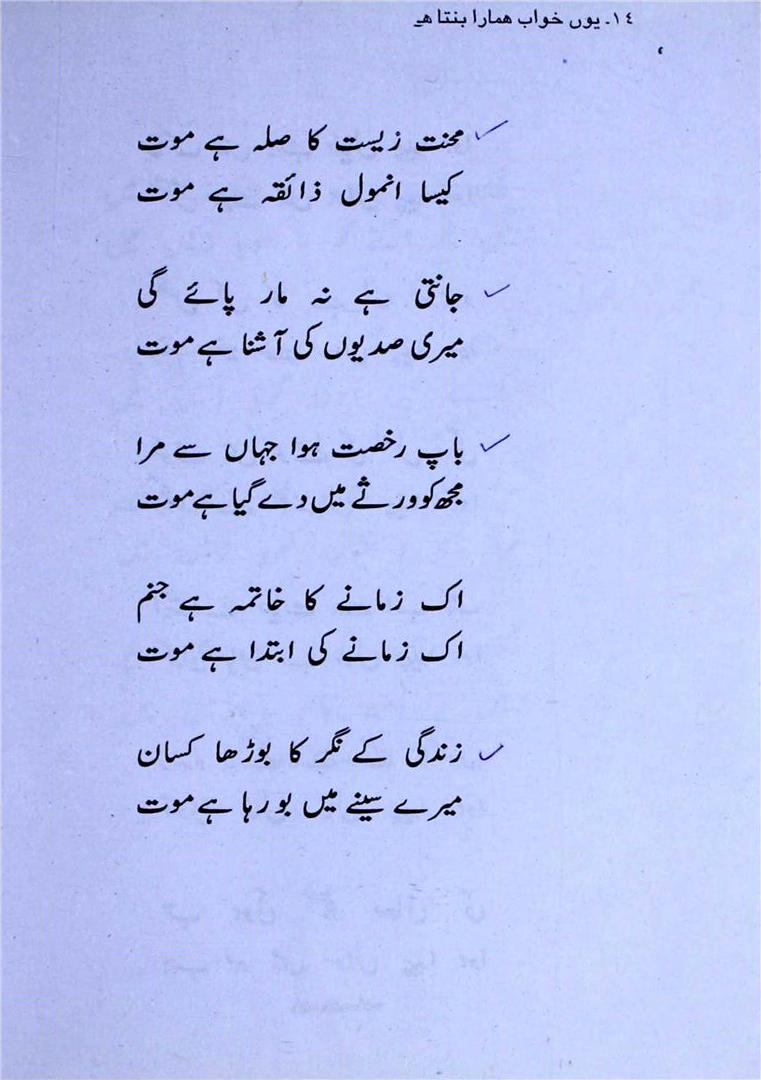 ١٤۔ یوں خواب ھمارا بنتا ھے
محنت زیست کا صلہ ہے موت
کیسا انمول ذائقہ ہے موت
جانتی ہے نہ مار پائے گی
میری صدیوں کی آشنا ہے موت
باپ رخصت ہوا جہاں سے مرا
مجھ کو ورثے میں دے گیا ہے موت
اک زمانے کا خاتمہ ہے جنم
اک زمانے کی ابتدا ہے موت
زندگی کے نگر کا بوڑھا کسان
میرے سینے میں بو رہا ہے موت